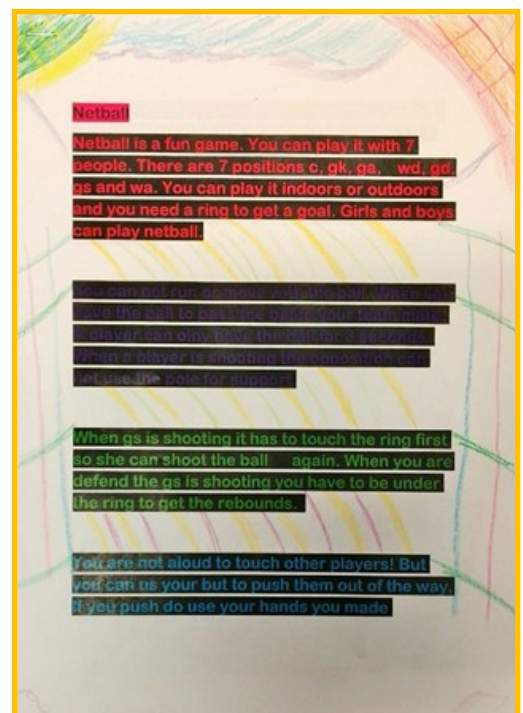 Netball
Netball is a fun game. You can play it with 7
people. There are 7 positions c, gk, ga, wd, gd,
gs and wa. You can play it indoors or outdoors
and you need a ring to get a goal. Girls and boys
can play netball.
You can not run or move with the ball. When you
have the ball to pass the ball to your team mate.
A player can olny have the ball for 3 seconds.
When a player is shooting the opposition can
not use the pole for support.
When gs is shooting it has to touch the ring first
so she can shoot the ball again. When you are
defend the gs is shooting you have to be under
the ring to get the rebounds.
You are not aloud to touch other players! But
you can us your but to push them out of the way.
If you push do use your hands you made